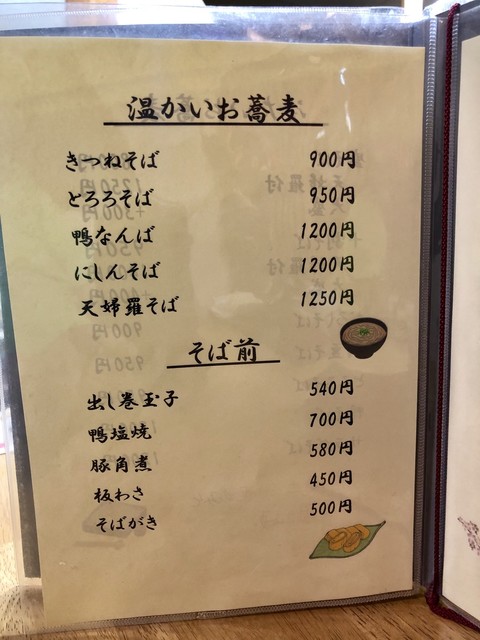 温かいお蕎麦
きつねそば 900円
とろろそば 950円
鴨なんば 1200円
にしんそば 1200円
天婦羅そば 1250円
そば前
出し巻玉子 540円
鴨塩焼 700円
豚角煮 580円
板わさ 450円
そばがき 500円